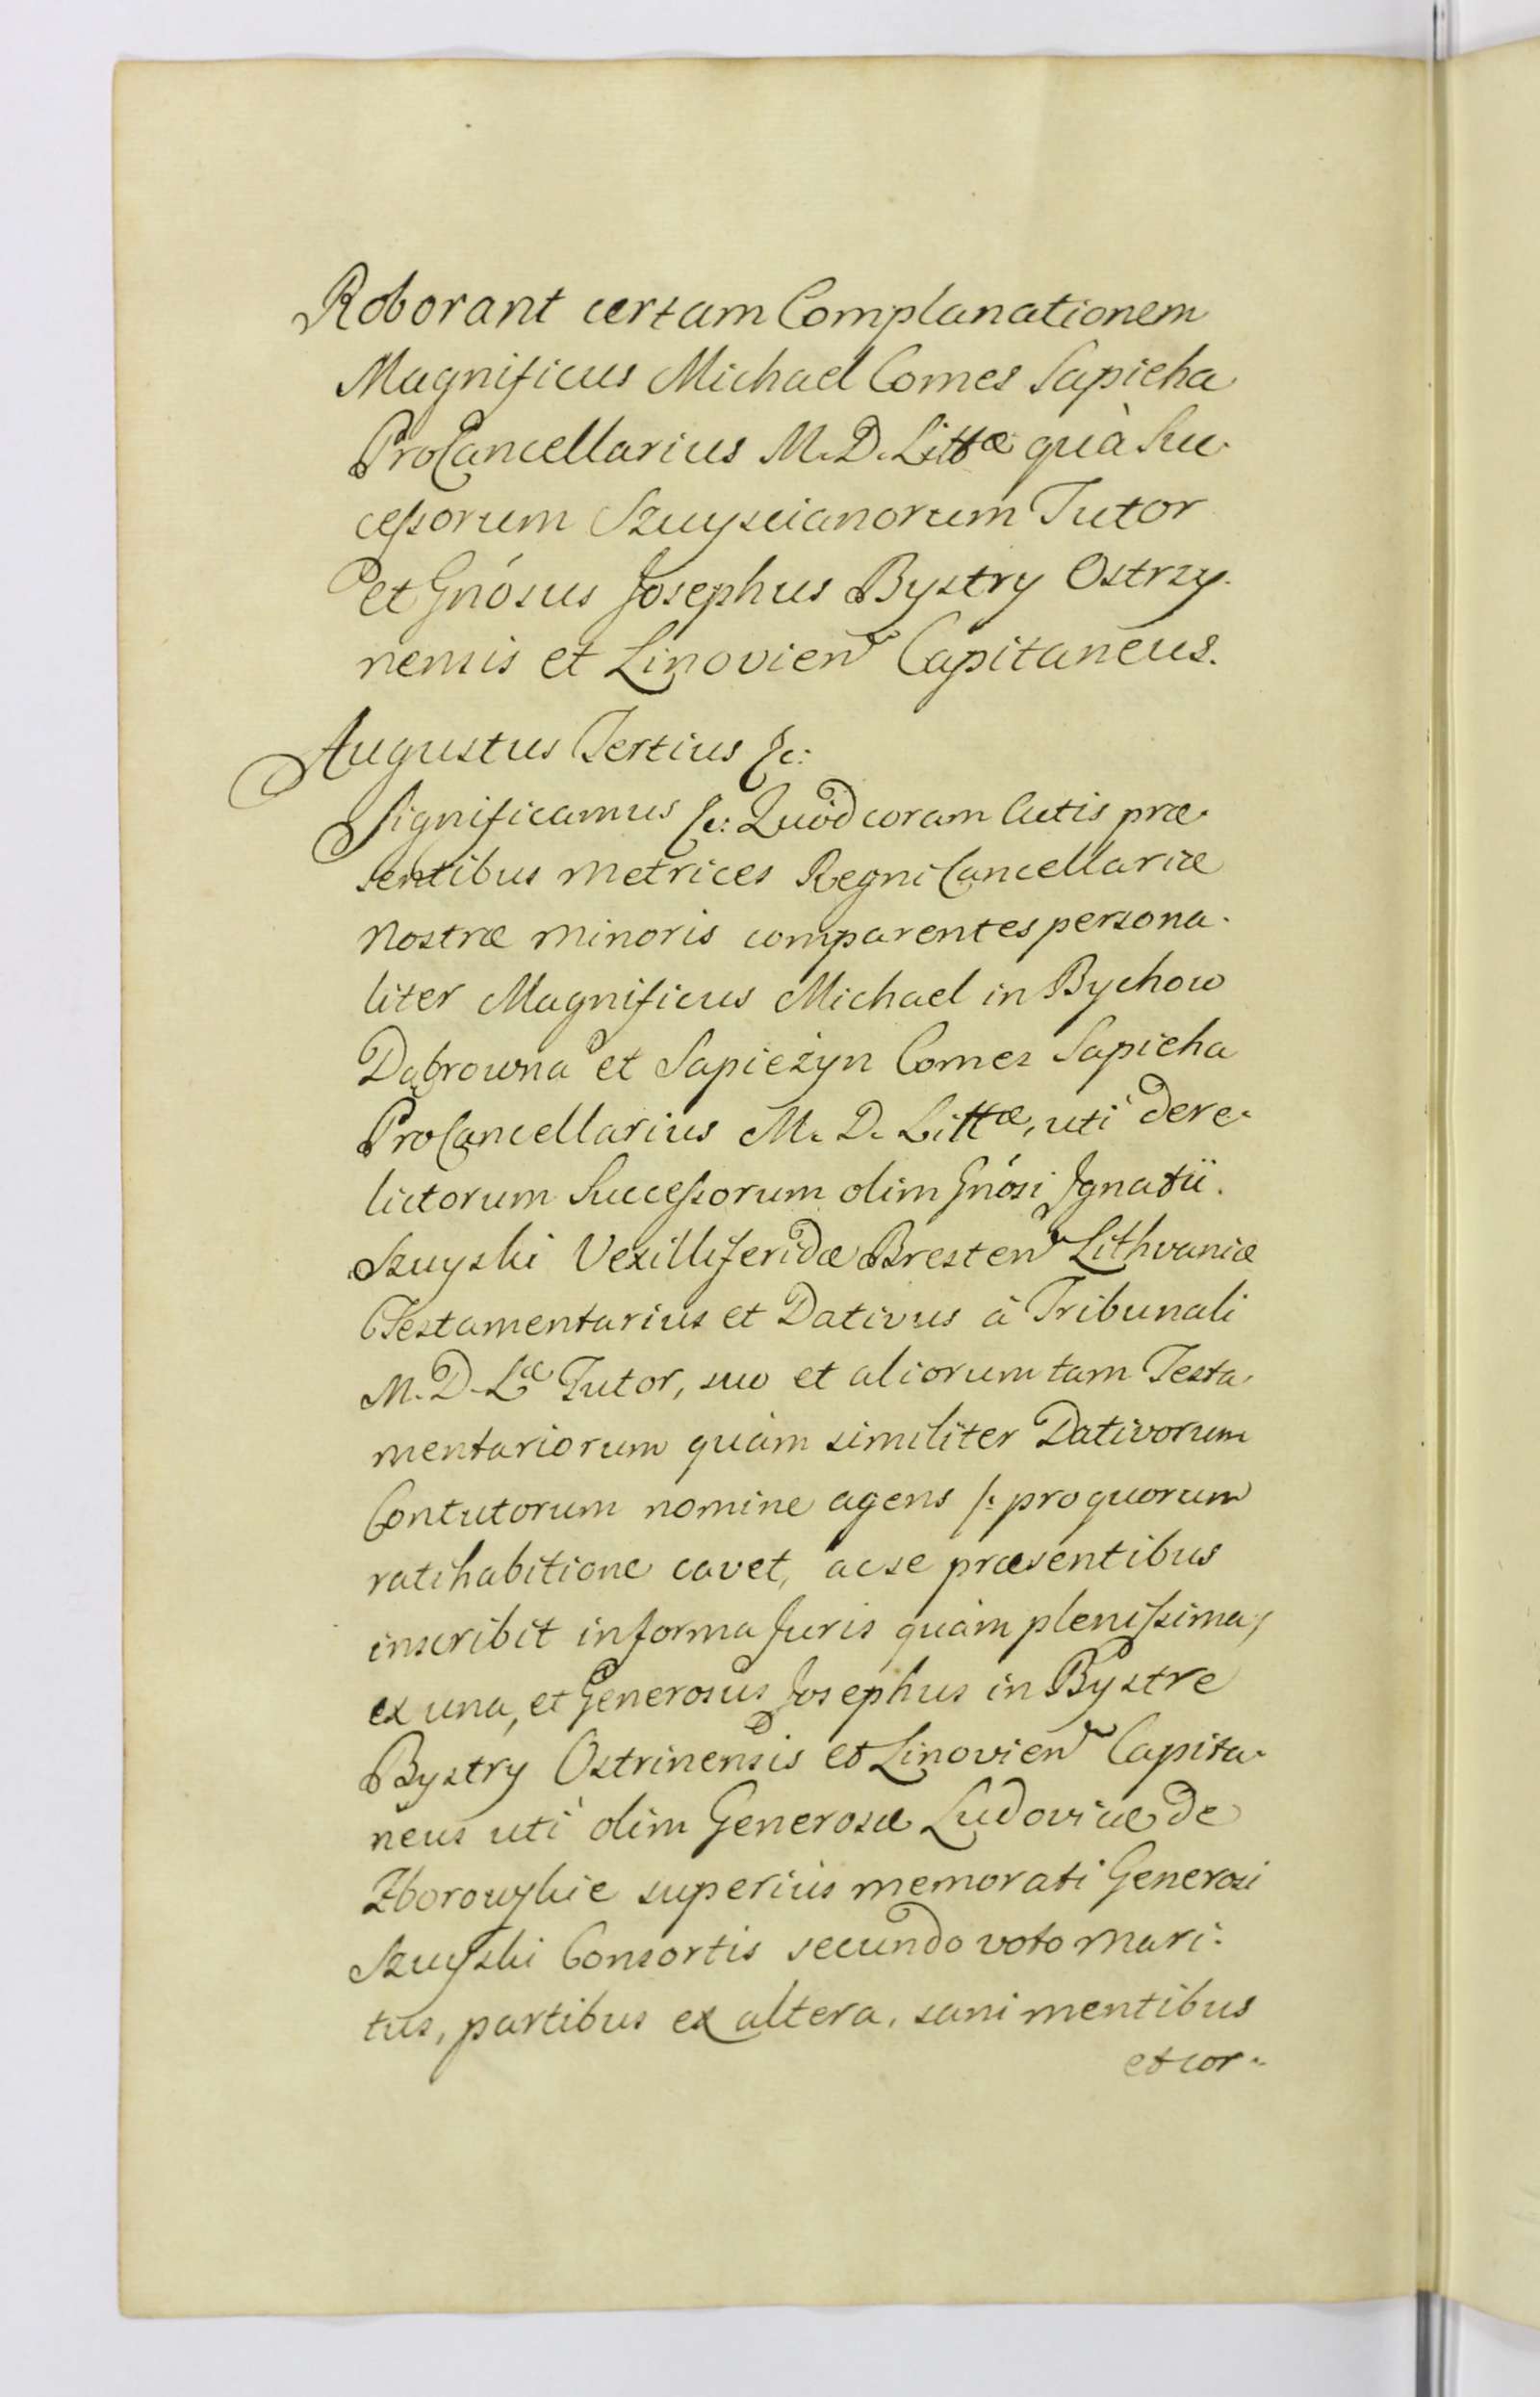 Roborant certam Complanationem
Magnificus Michael Comes Sapieha
ProCancellarius M. D. Littæ quà Suc-
cessorum Szuyscianorum Tutor
et Gnósus Josephus Bystry Ostrzy-
nensis et Linovien Capitaneus.
Augustus Tertius &c:
Significamus &c: Quòd coram Actis præ-
sentibus Metrices Regni Cancellariæ
Nostræ Minoris comparentes persona-
liter Magnificus Michael in Bychow
Dąbrowna et Sapieżyn Comes Sapieha
ProCancellarius M. D. Littæ, uti dere-
lictorum Successorum olim Gnósi Ignatii
Szuyski Vexilliferidæ Bresten Lithvaniæ
Testamentarius et Dativus à Tribunali
M. D. Læ Tutor, suo et aliorum tam Testa-
mentariorum quàm similiter Dativorum
Contutorum nomine agens /: pro quorum
ratihabitione cavet, ac se præsentibus
inscribit in forma Juris quàm plenissima,/
ex una, et Generosus Josephus in Bystre
Bystry Ostrinensis et Linovien Capita-
neus uti olim Generosæ Ludovicæ de
Zborowskie superius memorati Generosi
Szuyski Consortis secundo voto Mari-
tus, partibus ex altera, sani mentibus
et cor-